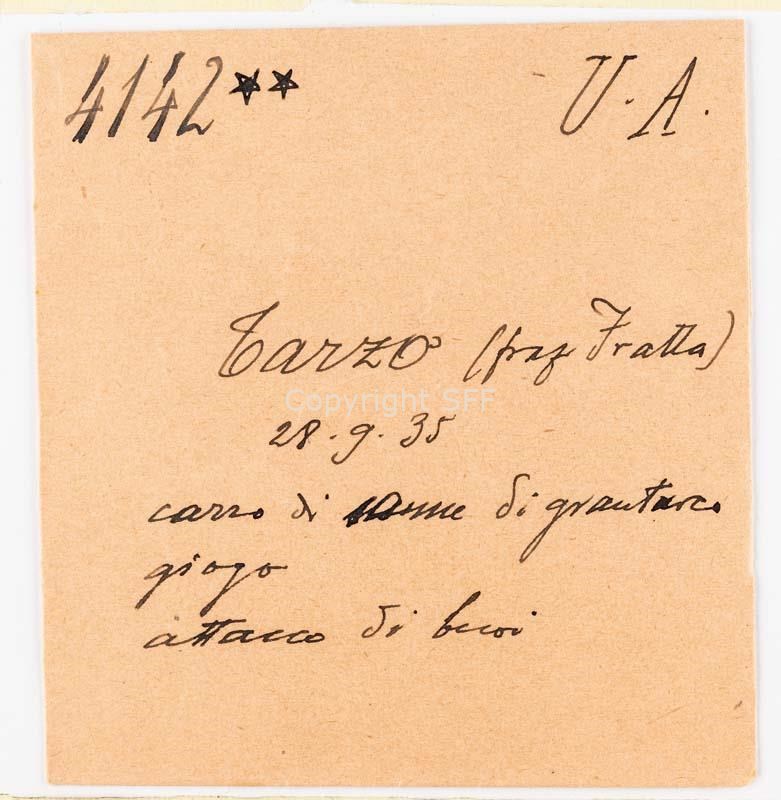 4142** U. A.
Tarzo (fraz Fratta)
Copyright SFF
28.9.35
carro di canne di granturco
giogo
attacco di buoi